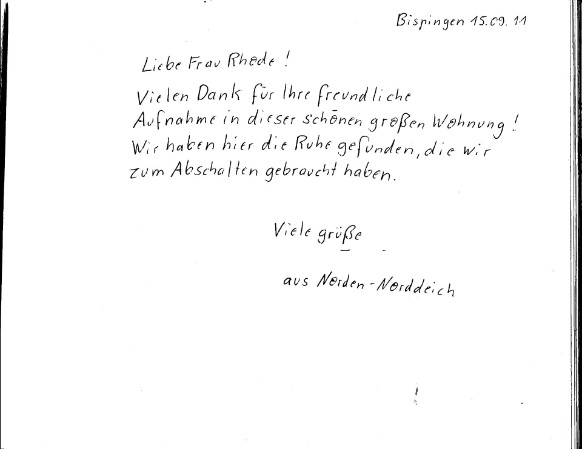 Bispingen 15.09.11
Liebe Frau Rhode!
Vielen Dank für Ihre freundliche
Aufnahme in dieser schönen großen Wohnung!
Wir haben hier die Ruhe gefunden, die wir
zum Abschalten gebraucht haben.
Viele grüße
aus Norden-Norddeich